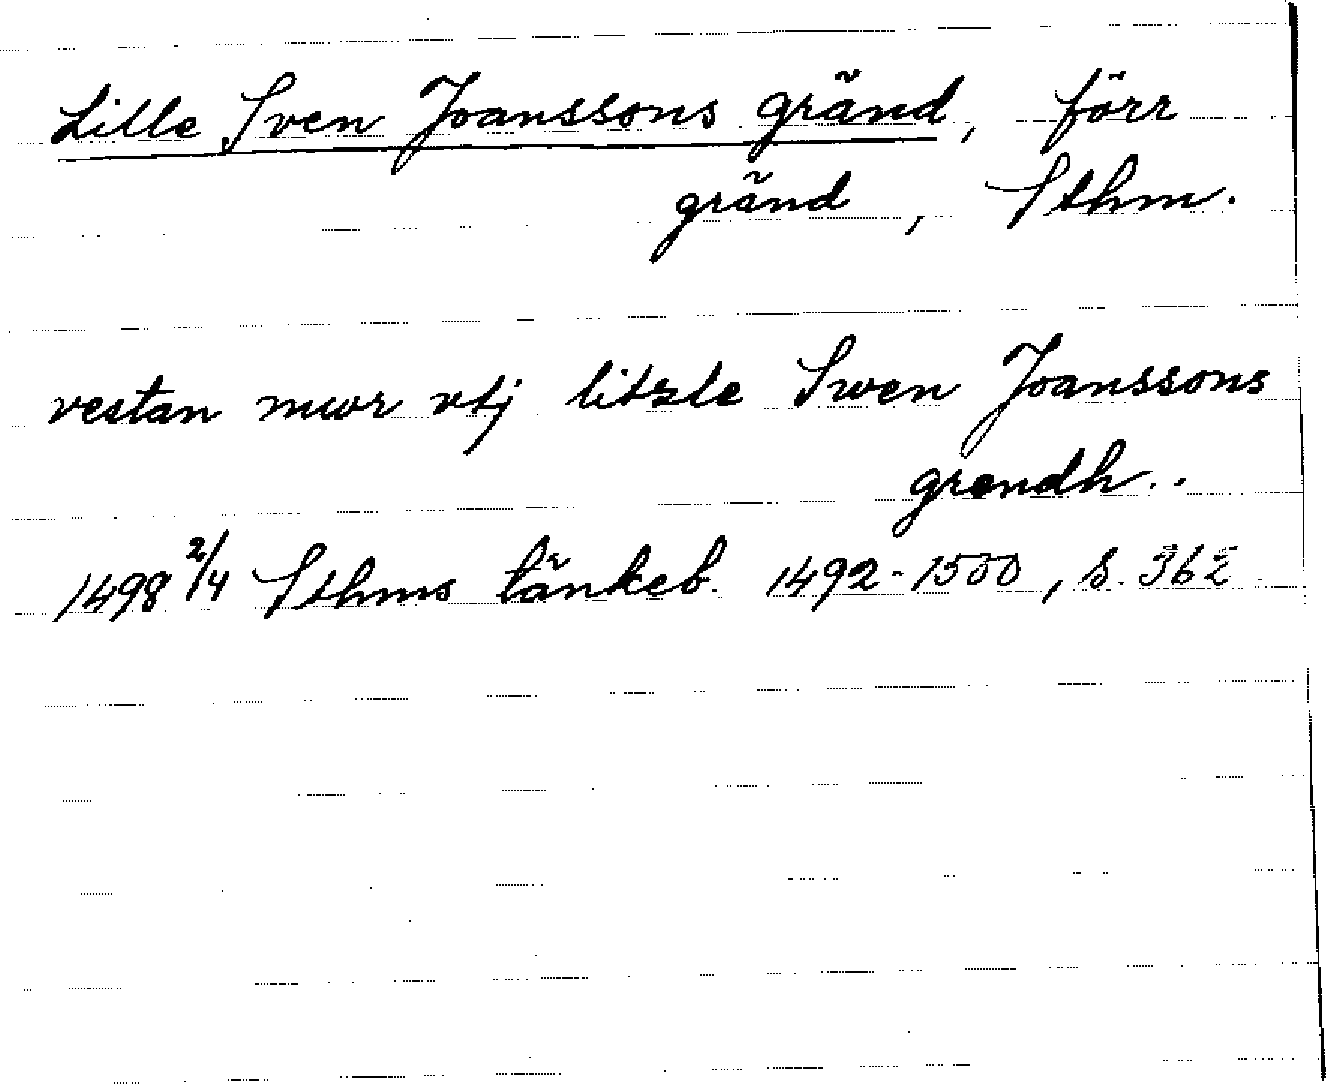 Lille Sven Joanssons gränd, förr
gränd, Sthm.
vestan mwr vtj litzle Swen Joanssons
grendh..
1498 2/4 Sthms tänkeb. 1492-1500, s. 362